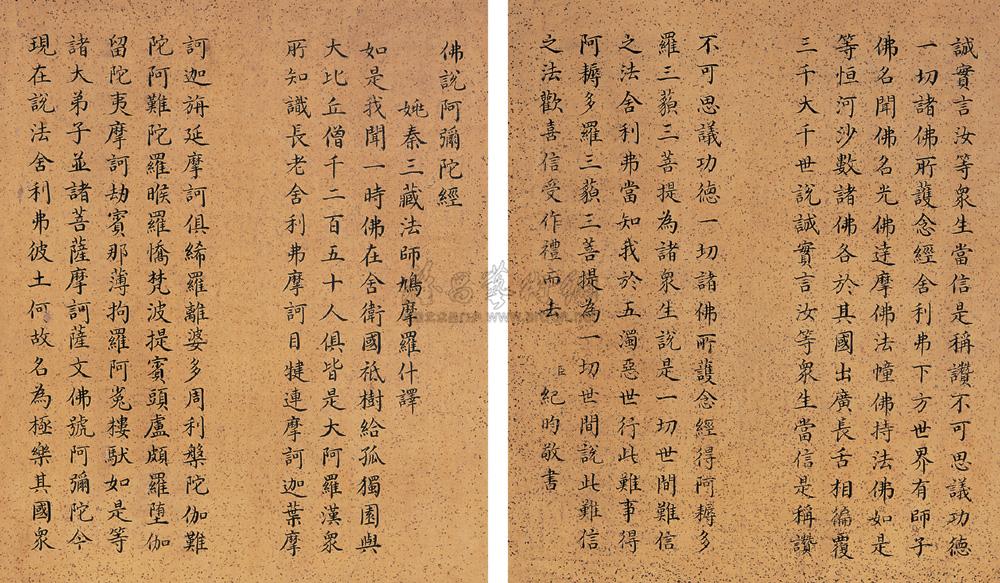 佛說阿彌陀經
姚秦三藏法師鳩摩羅什譯
如是我聞一時佛在舍衛國祇樹給孤獨園與
大比丘僧千二百五十人俱皆是大阿羅漢眾
所知識長老舍利弗摩訶目犍連摩訶迦葉摩
訶迦旃延摩訶俱絺羅離婆多周利槃陀伽難
陀阿難陀羅睺羅憍梵波提賓頭盧頗羅墮伽
留陀夷摩訶劫賓那薄拘羅阿㝹樓馱如是等
諸大弟子並諸菩薩摩訶薩文佛號阿彌陀今
現在說法舍利弗彼土何故名為極樂其國眾
誠實言汝等眾生當信是稱讚不可思議功德
一切諸佛所護念經舍利弗下方世界有師子
佛名聞佛名光佛達摩佛法幢佛持法佛如是
等恒河沙數諸佛各於其國出廣長舌相徧覆
三千大千世說誠實言汝等眾生當信是稱讚
不可思議功德一切諸佛所護念經得阿耨多
羅三藐三菩提為諸眾生說是一切世間難信
之法舍利弗當知我於五濁惡世行此難事得
阿耨多羅三藐三菩提為一切世間說此難信
之法歡喜信受作禮而去 臣紀昀敬書